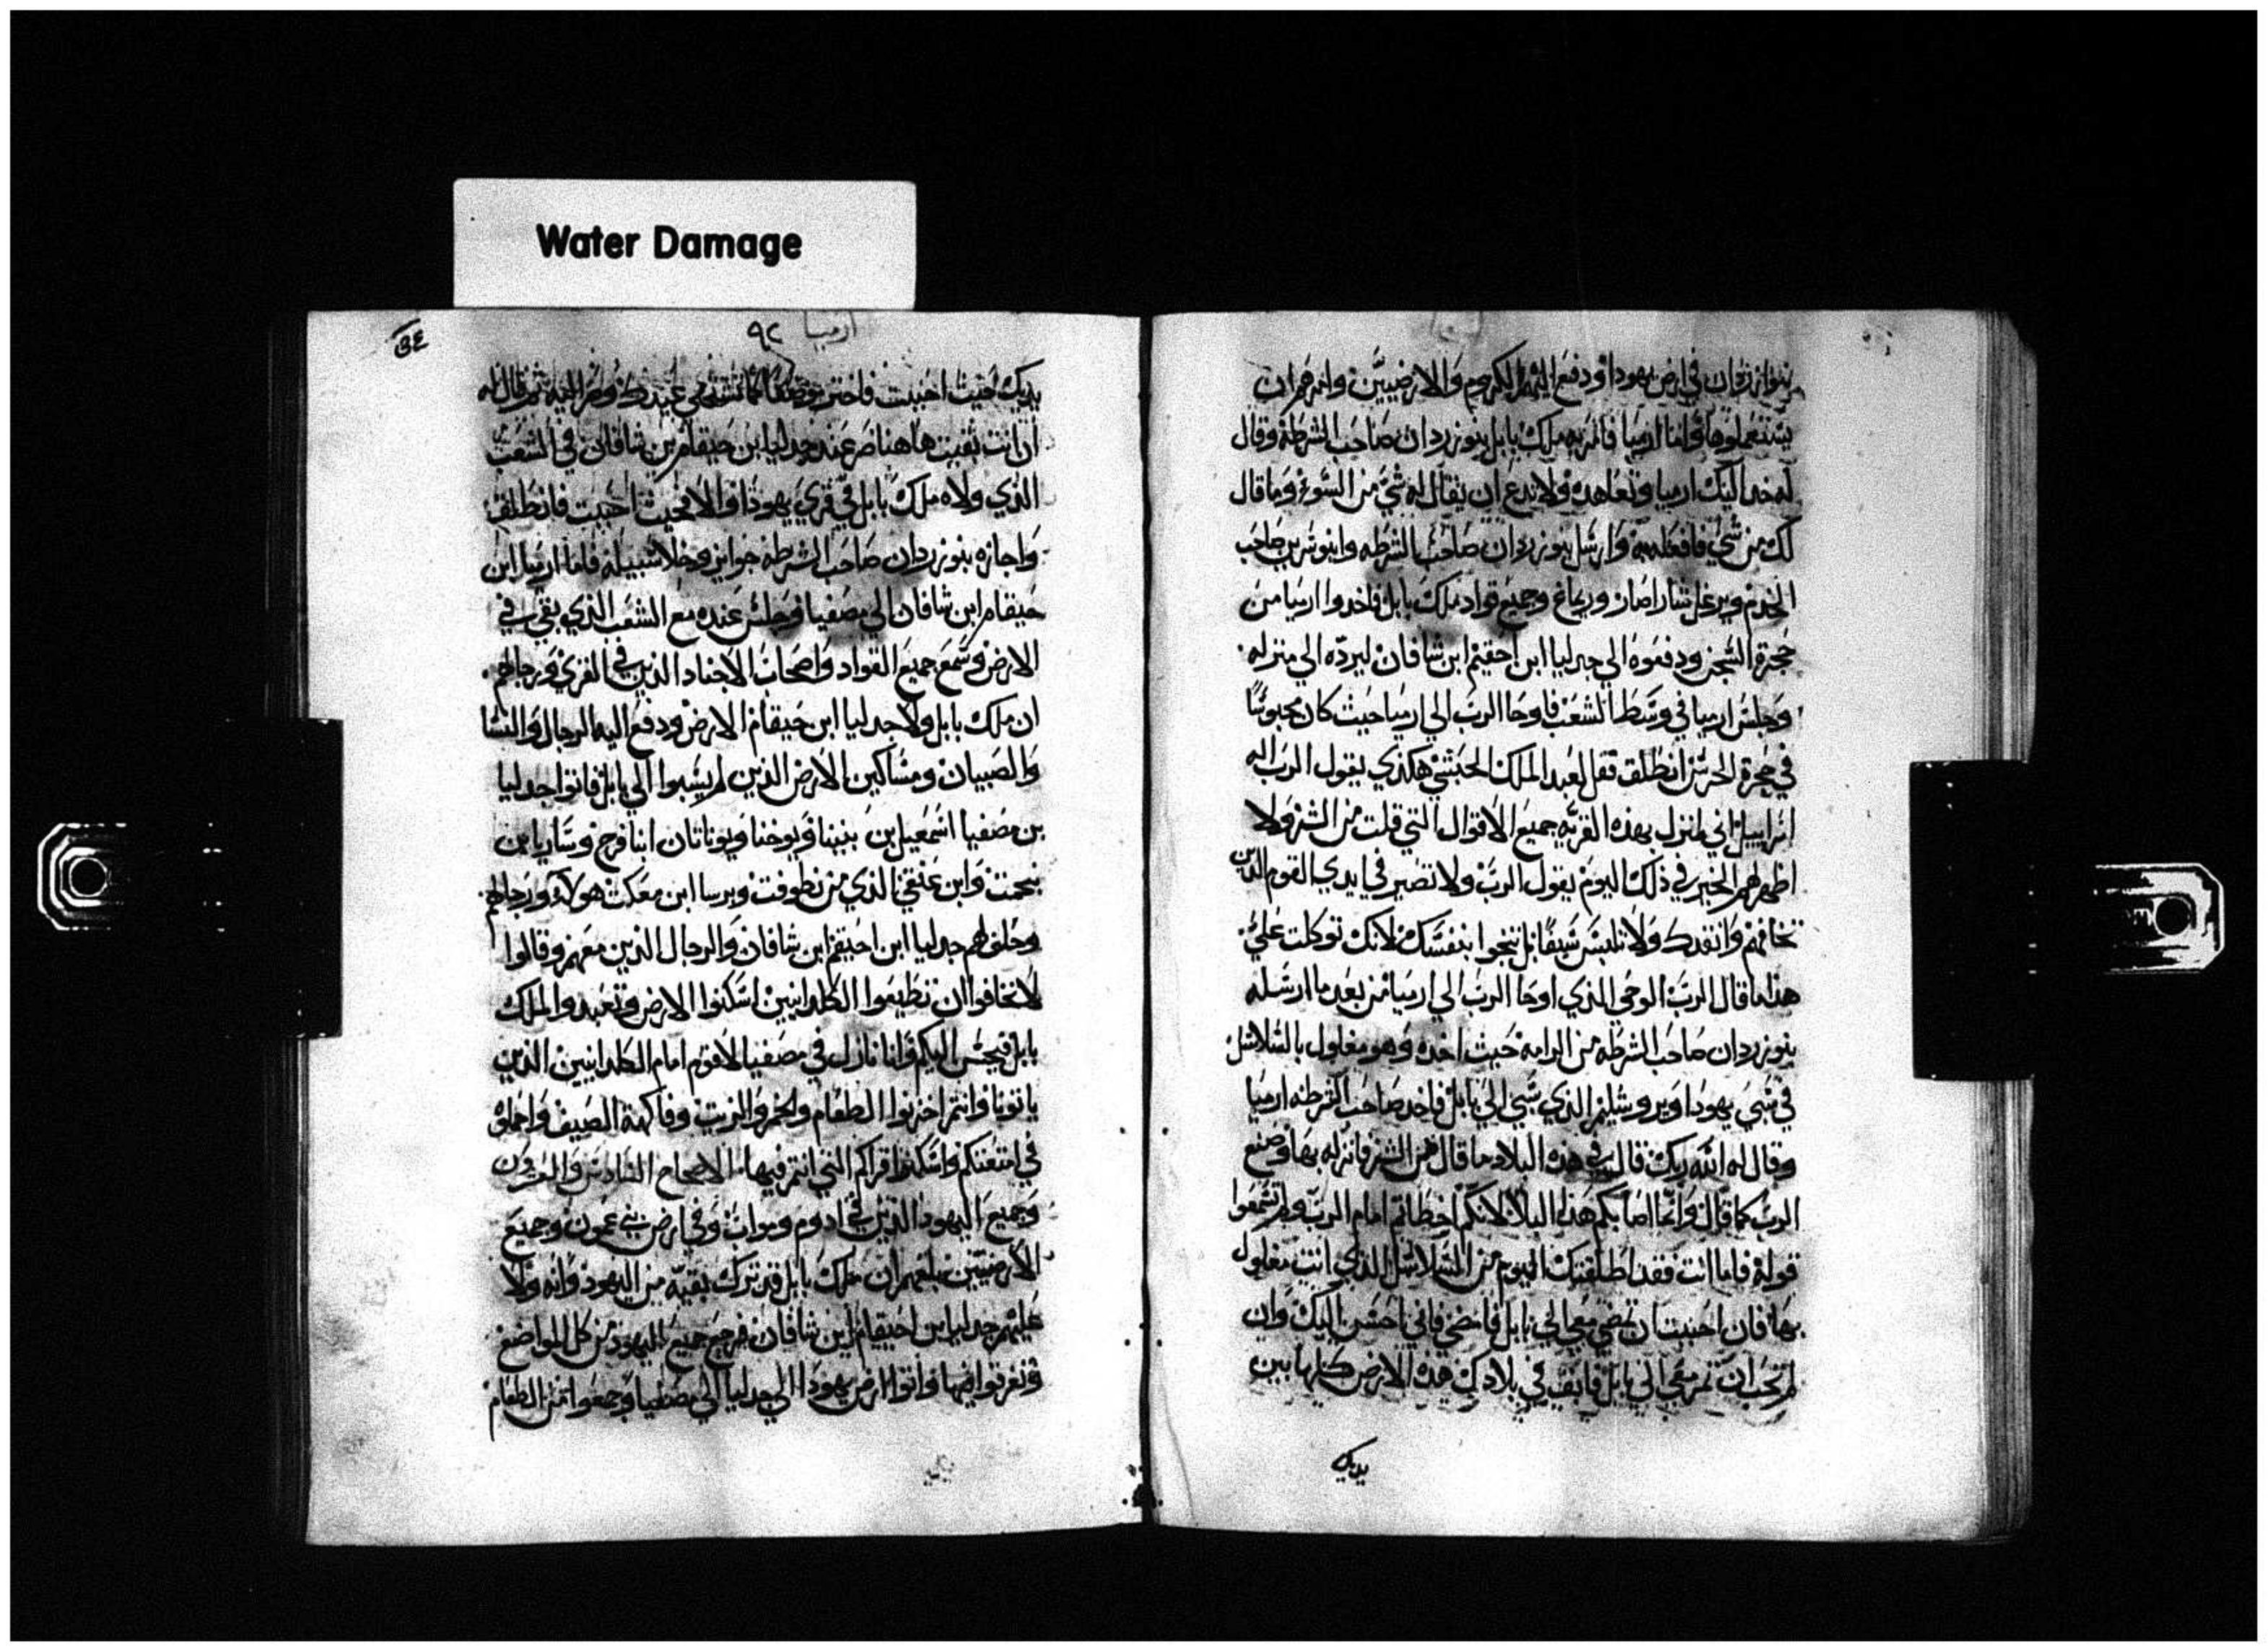 Water Damage
بنوازردان في ارض يهودا ودفع اليهم الكروم والارضيين وامرهم ان
يستعملوها واما ارميا فامر به ملك بابل بنوزردان صاحب الشرطه وقال
له خد اليك ارميا وتعاهده ولا تدع ان يقال له شي من السوء وما قال
لك من شي فافعله به وارسل بنوزردان صاحب الشرطه وابنوشربن صاحب
الخدم وجميع قواد ملك بابل فاخدوا ارميا من
حجرة السجن ودفعوه الي جدليا ابن احقيم ابن شافان ليرده الي منزله
وجلس ارميا في وسط الشعب فاوحا الرب الي ارميا حيث كان محبوسًا
في حجرة الحرس انطلق فقل لعبد الملك الحبشي هكذي يقول الرب اله
اسراييل اني منزل بهده القريه جميع الاقوال التي قلت من الشر ولا
اظهر لهم الخير في ذلك اليوم يقول الرب ولا تصير في ايدي القوم الذين
تخافهم وانقدك ولا تلبس سيفًا بل تنجوا بنفسك لانك توكلت علي
هذا ما قال الرب الوحي الذي اوحا الرب الي ارميا من بعد ما ارسله
بنوزردان صاحب الشرطه من الرامه حيث اخده وهو مغلول بالسلاسل
في سبي يهودا ويروشليم الذي سبي الي بابل فاخد صاحب الشرطه ارميا
وقال له الله ربك قال في هده البلاد ما قال من الشر فانزله بها وصنع
الرب كما قال وانما اصابكم هذا البلا لانكم اخطاتم امام الرب ولم تسمعوا
قوله فاما انت فقد اطلقتك اليوم من السلاسل الذي انت مغلول
بها فان احببت ان تمضي معي الي بابل فامضي فاني احسن اليك وان
لم تحب ان تمر معي الي بابل فابقي في بلادك هذه الارض كلها بين
يديك
ارميا
٩٢
يديك حيث احببت فاختر موضعًا ثم قال له
ان انت بقيت هاهنا صر عند جدليا بن حيقام بن شافان في الشعب
الذي ولاه ملك بابل في قري يهودا والا فحيث احببت فانطلق
واجازه بنوزردان صاحب الشرطه جوايز وخلا سبيله فاما ارميا ابن
حيقام ابن شافان الي مصفيا وجلس عنده مع الشعب الذي بقي في
الارض وسمع جميع القواد واصحاب الاجناد الذين في القري ورجالهم
ان ملك بابل ولا جدليا ابن حيقام الارض ودفع اليه الرجال والنسا
والصبيان ومساكين الارض الذين لم يسبوا الي بابل فاتوا جدليا
بن مصفيا اسمعيل بن بنينا ويوخنا ويوناتان ابنا فرح وساريا بن
بنحمت وابن عنقي الذي من نطوفت ويرسا ابن معكت هولاء ورجالهم
وحلف لهم جدليا ابن احيقم ابن شافان والرجال الذين معهم وقالوا
لا تخافوا ان تطيعوا الكلدانيين اسكنوا الارض وتعبدوا لملك
بابل فيحسن اليكم وانا نازل في مصفيا لاقوم امام الكلدانيين الذين
ياتونا وانتم اخزنوا الطعام والخمر والزيت وفاكهة الصيف واحملوه
في امتعتكم واسكنوا قراكم التي انتم فيها الاصحاح السادس والعشرون
وجميع اليهود الذين في ادوم ومواب وفي ارض بني عمون وجميع
الارضيين بلغهم ان ملك بابل قد ترك بقيه من اليهود وانه ولا
عليهم جدليا بن احيقام ابن شافان فرجع جميع اليهود من كل المواضع
وتفرقوا فيها واتوا ارض يهودا الي جدليا الي مصفيا وجمعوا من الطعام